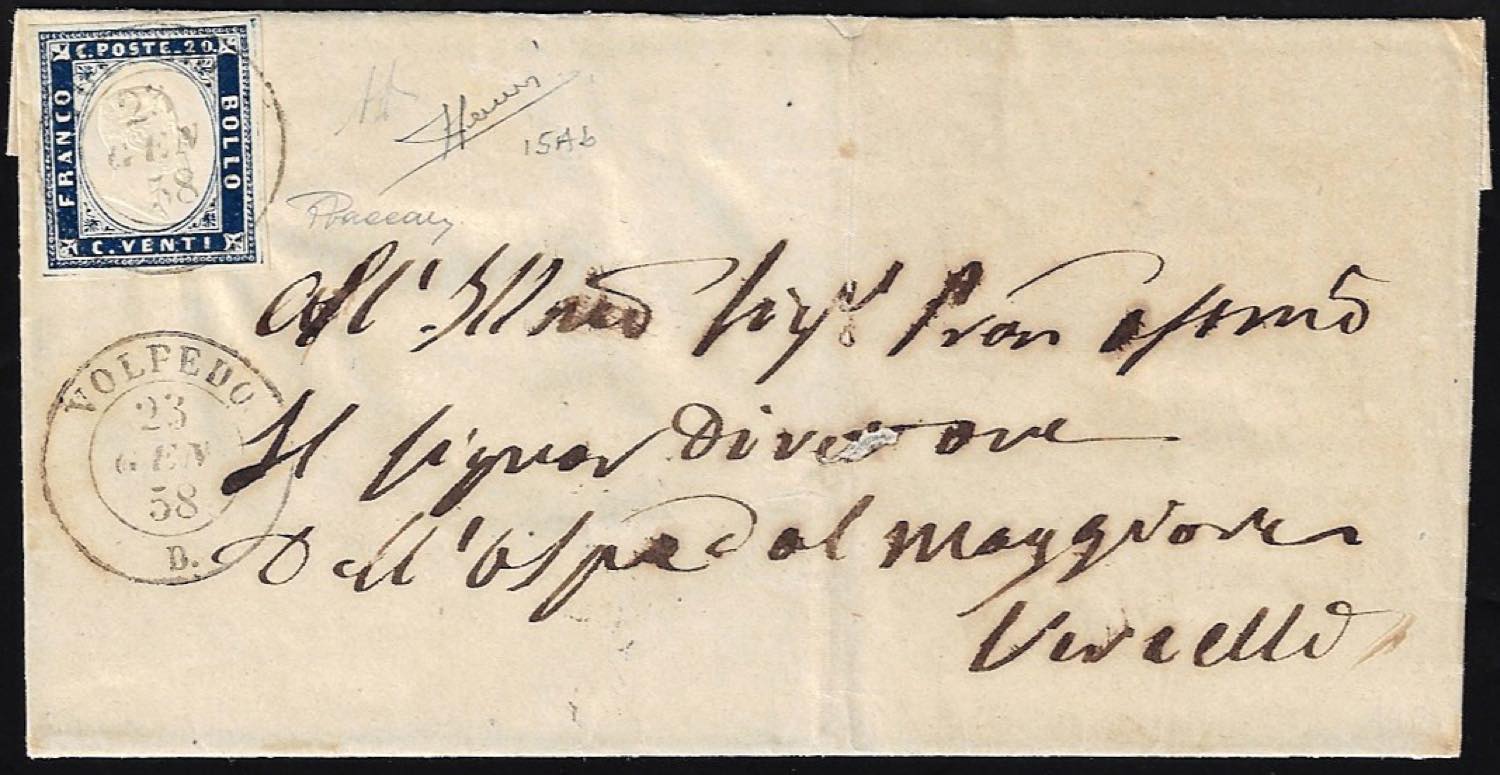 C. POSTE. 20.
FRANCO
BOLLO
C. VENTI
23
GEN
58
15Ab
VOLPEDO
23
GEN
58
D.
All' Ill.mo Sig.r Pron
Il Signor Direttore
Dell'Ospedal Maggiore
Vercelli